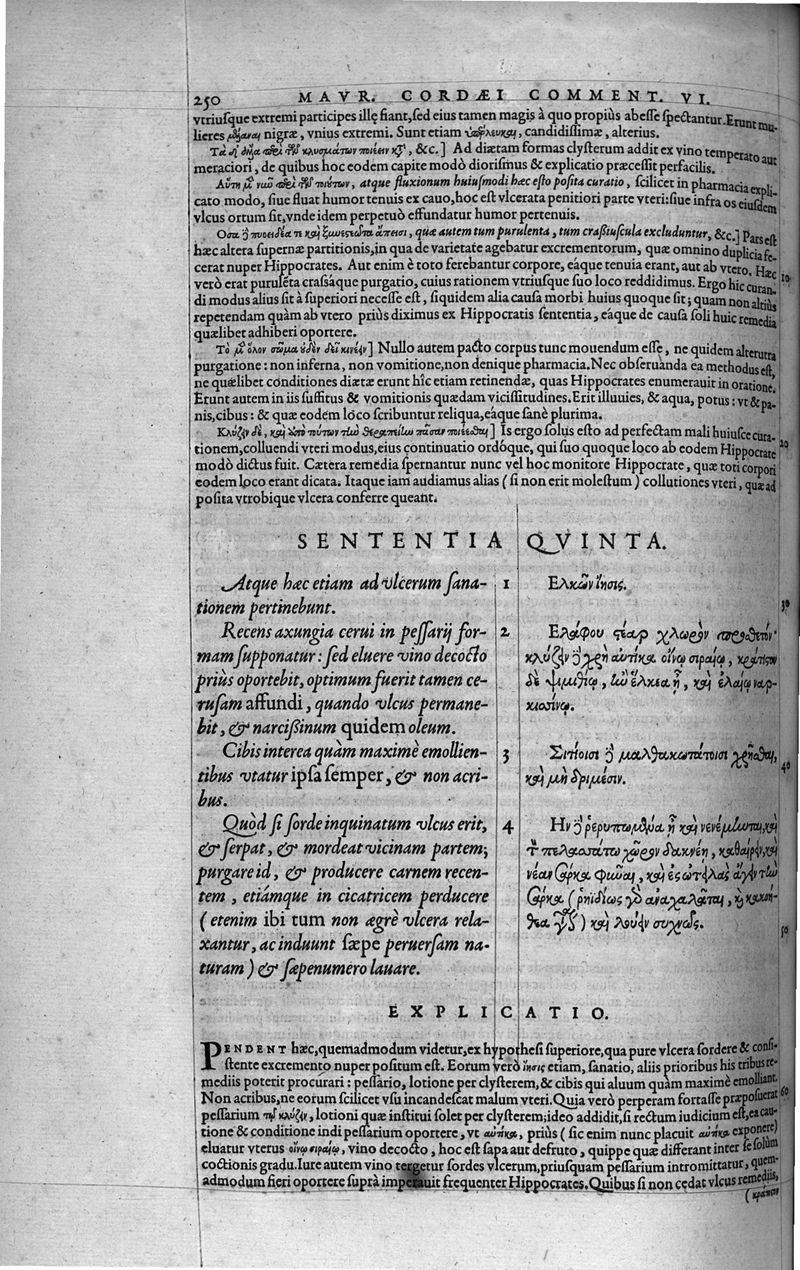 250 MAVR. CORDÆI COMMENT. VI.
vtriusque extremi participes illę fiant, sed eius tamen magis à quo propiùs abesse spectantur. Erunt mu-
lieres nigræ, vnius extremi. Sunt etiam candidissimæ, alterius.
&c.] Ad diætam formas clysterum addit ex vino temperato aut
meraciori, de quibus hoc eodem capite modò diorismus & explicatio præcessit perfacilis.
atque fluxionum huiusmodi hæc esto posita curatio, scilicet in pharmacia expli-
cato modo, siue fluat humor tenuis ex cauo, hoc est vlcerata penitiori parte vteri: siue infra os eiusdem
vlcus ortum sit, vnde idem perpetuò effundatur humor pertenuis.
quæ autem tum purulenta, tum crassiuscula excluduntur, &c.] Pars est
hæc altera supernæ partitionis, in qua de varietate agebatur excrementorum, quæ omnino duplicia fe-
cerat nuper Hippocrates. Aut enim è toto ferebantur corpore, eáque tenuia erant, aut ab vtero. Hæc 10
verò erat purulẽta crassáque purgatio, cuius rationem vtriusque suo loco reddidimus. Ergo hic curan-
di modus alius sit à superiori necesse est, siquidem alia causa morbi huius quoque sit; quam non altiùs
repetendam quàm ab vtero priùs diximus ex Hippocratis sententia, eáque de causa soli huic remedia
quælibet adhiberi oportere.
Τὸ μὲν ὅλον σῶμα οὐδὲν δεῖ κινέειν] Nullo autem pacto corpus tunc mouendum esse, ne quidem alterutra
purgatione: non inferna, non vomitione, non denique pharmacia. Nec obseruanda ea methodus est,
ne quælibet conditiones diætæ erunt hîc etiam retinendæ, quas Hippocrates enumerauit in oratione.
Erunt autem in iis suffitus & vomitionis quædam vicissitudines. Erit illuuies, & aqua, potus: vt & pa-
nis, cibus: & quæ eodem loco scribuntur reliqua, eáque sanè plurima.
Is ergo solus esto ad perfectam mali huiusce cura-
tionem, colluendi vteri modus, eius continuatio ordóque, qui suo quoque loco ab eodem Hippocrate 20
modò dictus fuit. Cætera remedia spernantur nunc vel hoc monitore Hippocrate, quæ toti corpori
eodem loco erant dicata. Itaque iam audiamus alias (si non erit molestum) collutiones vteri, quæ ad
posita vtrobique vlcera conferre queant.
SENTENTIA QVINTA.
Atque hæc etiam ad vlcerum sana-
tionem pertinebunt.
Recens axungia cerui in pessarij for-
mam supponatur: sed eluere vino decocto
priùs oportebit, optimum fuerit tamen ce-
rusam affundi, quando vlcus permane-
bit, & narcissinum quidem oleum.
Cibis interea quàm maximè emollien-
tibus vtatur ipsa semper, & non acri-
bus.
Quòd si sorde inquinatum vlcus erit,
& serpat, & mordeat vicinam partem;
purgare id, & producere carnem recen-
tem, etiámque in cicatricem perducere
(etenim ibi tum non ægrè vlcera rela-
xantur, ac induunt sæpe peruersam na-
turam) & sæpenumero lauare.
1 Ελκῶν ἴησις.
30
2 Ελάφου στέαρ χλωρὸν προσθετόν·
κλύζειν δὲ χρὴ αὐτίκα οἴνῳ σιραίῳ, κράτιστον
δὲ ψιμυθίῳ, ἢν ἕλκεα ᾖ, καὶ ἐλαίῳ ναρ-
κισσίνῳ.
3 Σιτίοισι δὲ μαλθακωτάτοισι χρῆσθαι,
καὶ μὴ δριμέσιν. 40
4 Ην δὲ ῥερυπωμένα ᾖ καὶ νενεμέωται, καὶ
τὸ πελαστάτω χωρὸν δακνέῃ, καθαίρειν, καὶ
νέαν σάρκα φῦσαι, καὶ ἐς ὠτειλὰς ἄγειν τὴν
σάρκα (ῥηϊδίως γὰρ ἀναχαλᾶται, καὶ κακοή-
θεα γίνεται) καὶ λούειν συχνῶς. 50
EXPLICATIO.
PENDENT hæc, quemadmodum videtur, ex hypothesi superiore, qua pure vlcera sordere & consi-
stente excremento nuper positum est. Eorum verò ἴησις etiam, sanatio, aliis prioribus his tribus re-
mediis poterit procurari: pessario, lotione per clysterem, & cibis qui aluum quàm maximè emolliant.
Non acribus, ne eorum scilicet vsu incandescat malum vteri. Quia verò perperam fortasse præposuerat 60
pessarium τῷ κλύζειν, lotioni quæ institui solet per clysterem; ideo addidit, si rectum iudicium est, ea cau-
tione & conditione indi pessarium oportere, vt αὐτίκα, priùs (sic enim nunc placuit αὐτίκα exponere)
eluatur vterus οἴνῳ σιραίῳ, vino decocto, hoc est sapa aut defruto, quippe quæ differant inter se solum
coctionis gradu. Iure autem vino tergetur sordes vlcerum, priusquam pessarium intromittatur, quem-
admodum fieri oportere suprà imperauit frequenter Hippocrates. Quibus si non cedat vlcus remediis,
(κράτιστον